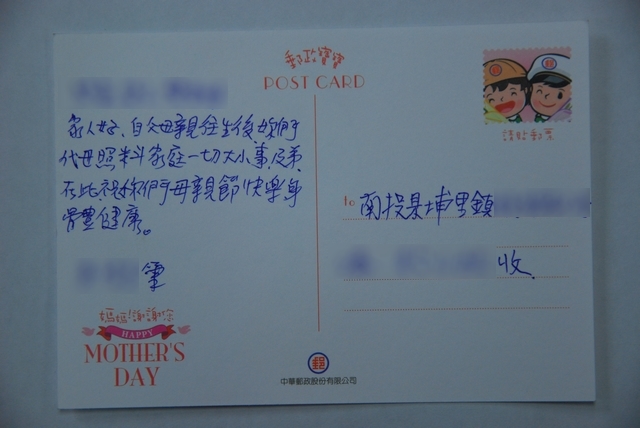 郵政寶寶
POST CARD
請貼郵票
家人好、自父母親往生後,妳們
代母照料家庭一切大小事,反弟
在此祝妳們母親節快樂身
體健康。
筆
to 南投縣埔里鎮
收
媽媽!謝謝您
HAPPY
MOTHER'S
DAY
郵
中華郵政股份有限公司